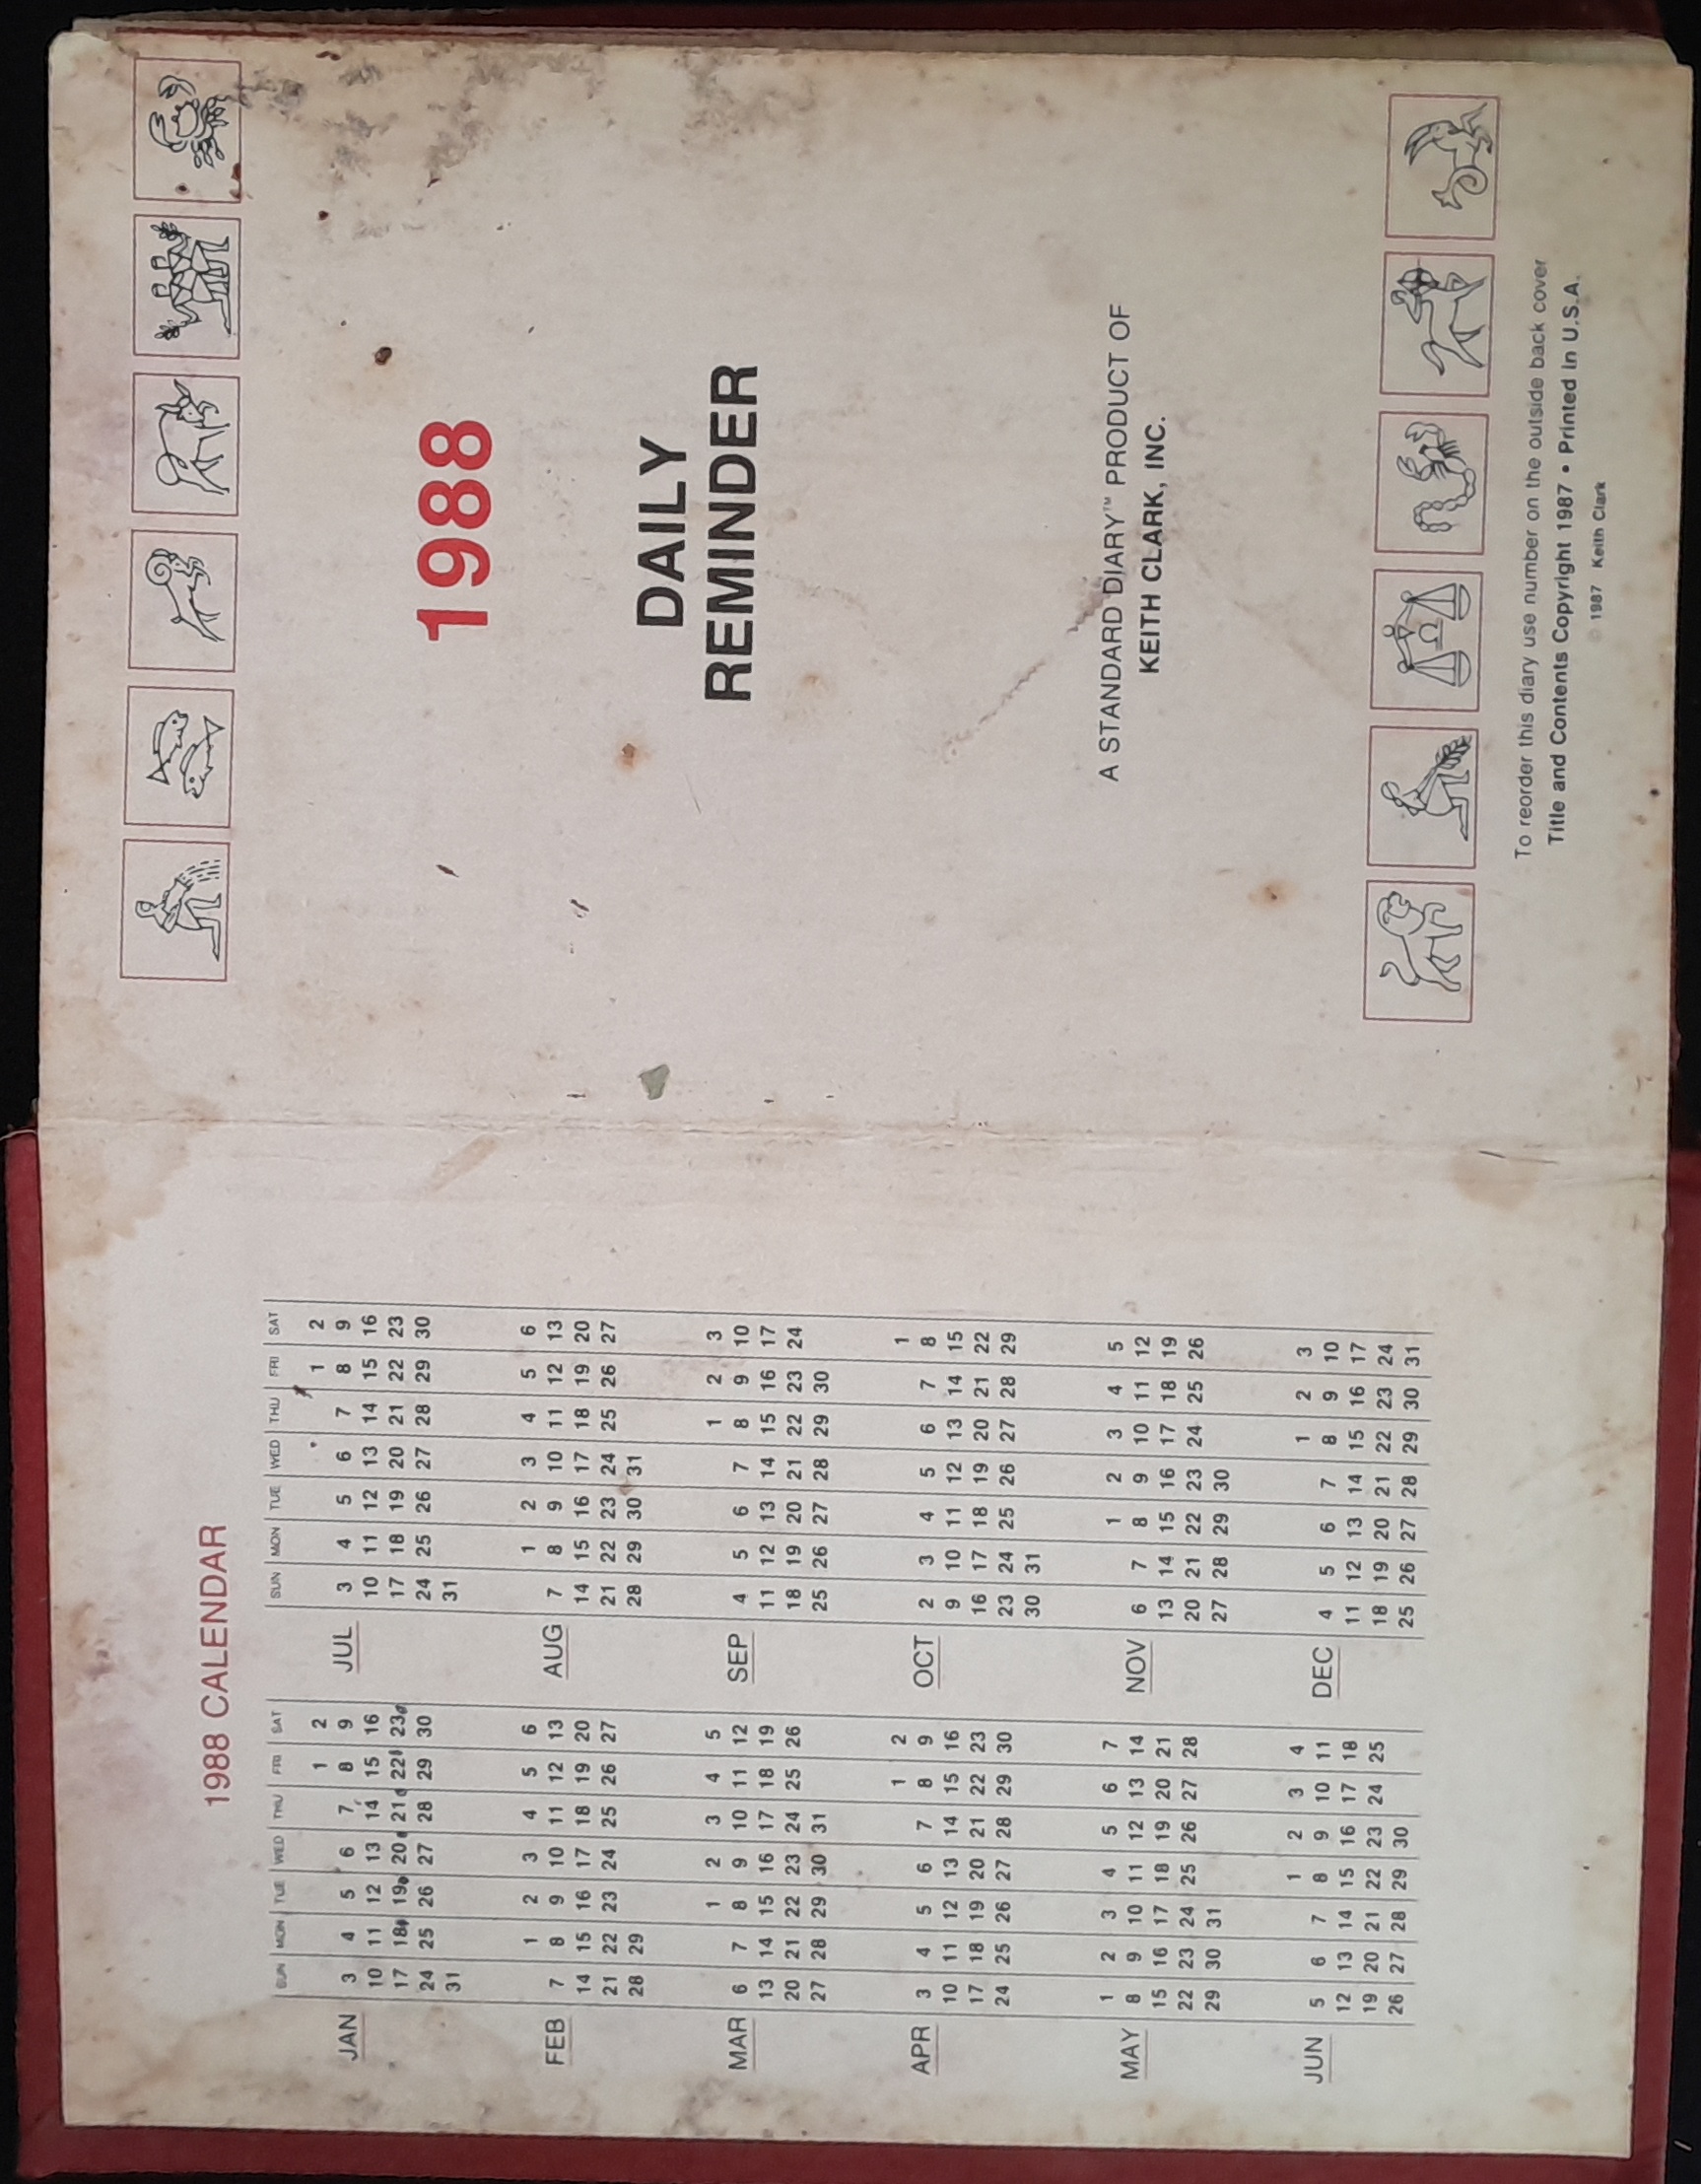 1988 CALENDAR
SUN MON TUE WED THU FRI SAT
1 2
JAN 3 4 5 6 7 8 9
10 11 12 13 14 15 16
17 18 19 20 21 22 23
24 25 26 27 28 29 30
31
1 2 3 4 5 6
FEB 7 8 9 10 11 12 13
14 15 16 17 18 19 20
21 22 23 24 25 26 27
28 29
1 2 3 4 5
MAR 6 7 8 9 10 11 12
13 14 15 16 17 18 19
20 21 22 23 24 25 26
27 28 29 30 31
1 2
APR 3 4 5 6 7 8 9
10 11 12 13 14 15 16
17 18 19 20 21 22 23
24 25 26 27 28 29 30
1 2 3 4 5 6 7
MAY 8 9 10 11 12 13 14
15 16 17 18 19 20 21
22 23 24 25 26 27 28
29 30 31
1 2 3 4
JUN 5 6 7 8 9 10 11
12 13 14 15 16 17 18
19 20 21 22 23 24 25
26 27 28 29 30
SUN MON TUE WED THU FRI SAT
1 2
JUL 3 4 5 6 7 8 9
10 11 12 13 14 15 16
17 18 19 20 21 22 23
24 25 26 27 28 29 30
31
1 2 3 4 5 6
AUG 7 8 9 10 11 12 13
14 15 16 17 18 19 20
21 22 23 24 25 26 27
28 29 30 31
1 2 3
SEP 4 5 6 7 8 9 10
11 12 13 14 15 16 17
18 19 20 21 22 23 24
25 26 27 28 29 30
1
OCT 2 3 4 5 6 7 8
9 10 11 12 13 14 15
16 17 18 19 20 21 22
23 24 25 26 27 28 29
30 31
1 2 3 4 5
NOV 6 7 8 9 10 11 12
13 14 15 16 17 18 19
20 21 22 23 24 25 26
27 28 29 30
1 2 3
DEC 4 5 6 7 8 9 10
11 12 13 14 15 16 17
18 19 20 21 22 23 24
25 26 27 28 29 30 31
1988
DAILY
REMINDER
A STANDARD DIARY™ PRODUCT OF
KEITH CLARK, INC.
To reorder this diary use number on the outside back cover
Title and Contents Copyright 1987 • Printed in U.S.A.
© 1987 Keith Clark